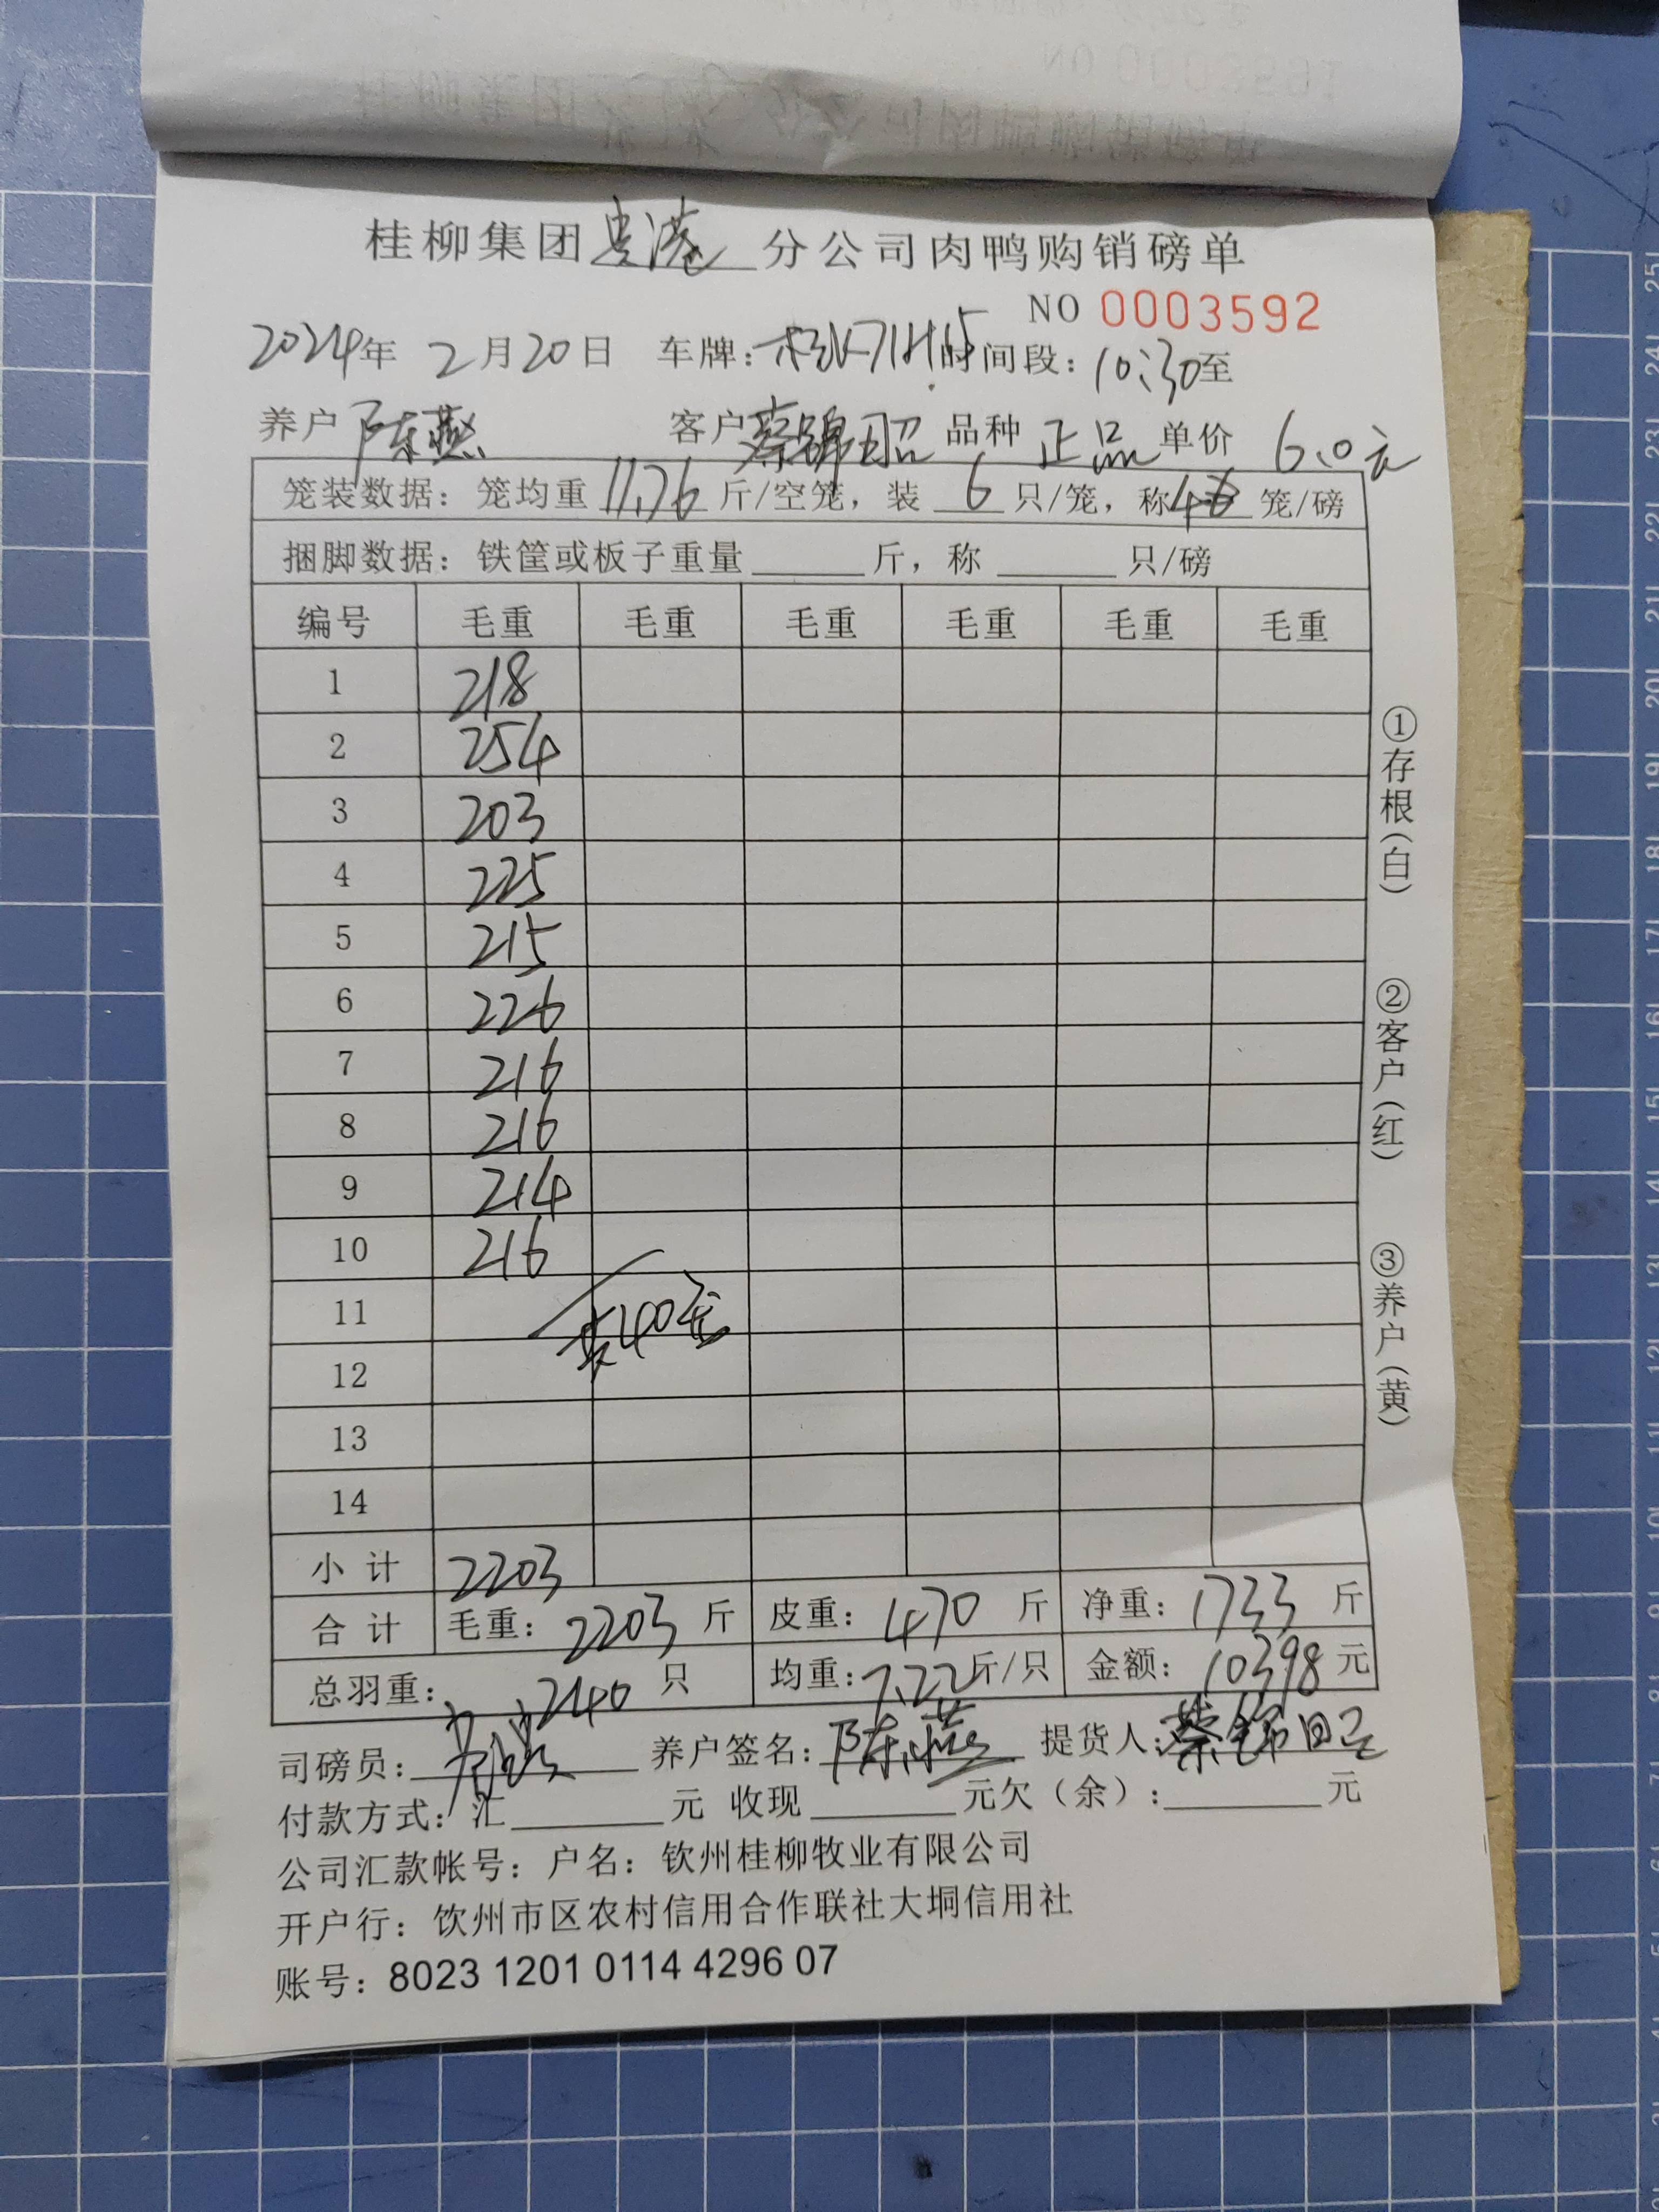 桂柳集团贵港分公司肉鸭购销磅单
NO 0003592
2024年 2月20日 车牌: 时间段: 10:30至
养户 陈燕 客户 蔡锦昭 品种 正品 单价 6.0元
笼装数据: 笼均重 11.76 斤/空笼, 装 6 只/笼, 称 4 笼/磅
捆脚数据: 铁筐或板子重量 斤, 称 只/磅
编号 毛重 毛重 毛重 毛重 毛重 毛重
1 218
2 254
3 203
4 225
5 215
6 226
7 216
8 216
9 214
10 216
11
装40笼
12
13
14
小计 2203
合计 毛重: 2203 斤 皮重: 470 斤 净重: 1733 斤
总羽重: 240 只 均重: 7.22 斤/只 金额: 10398 元
司磅员: 养户签名: 陈燕 提货人: 蔡锦昭
付款方式: 汇 元 收现 元欠(余): 元
公司汇款帐号: 户名: 钦州桂柳牧业有限公司
开户行: 钦州市区农村信用合作联社大垌信用社
账号: 8023 1201 0114 4296 07
①存根(白)
②客户(红)
③养户(黄)